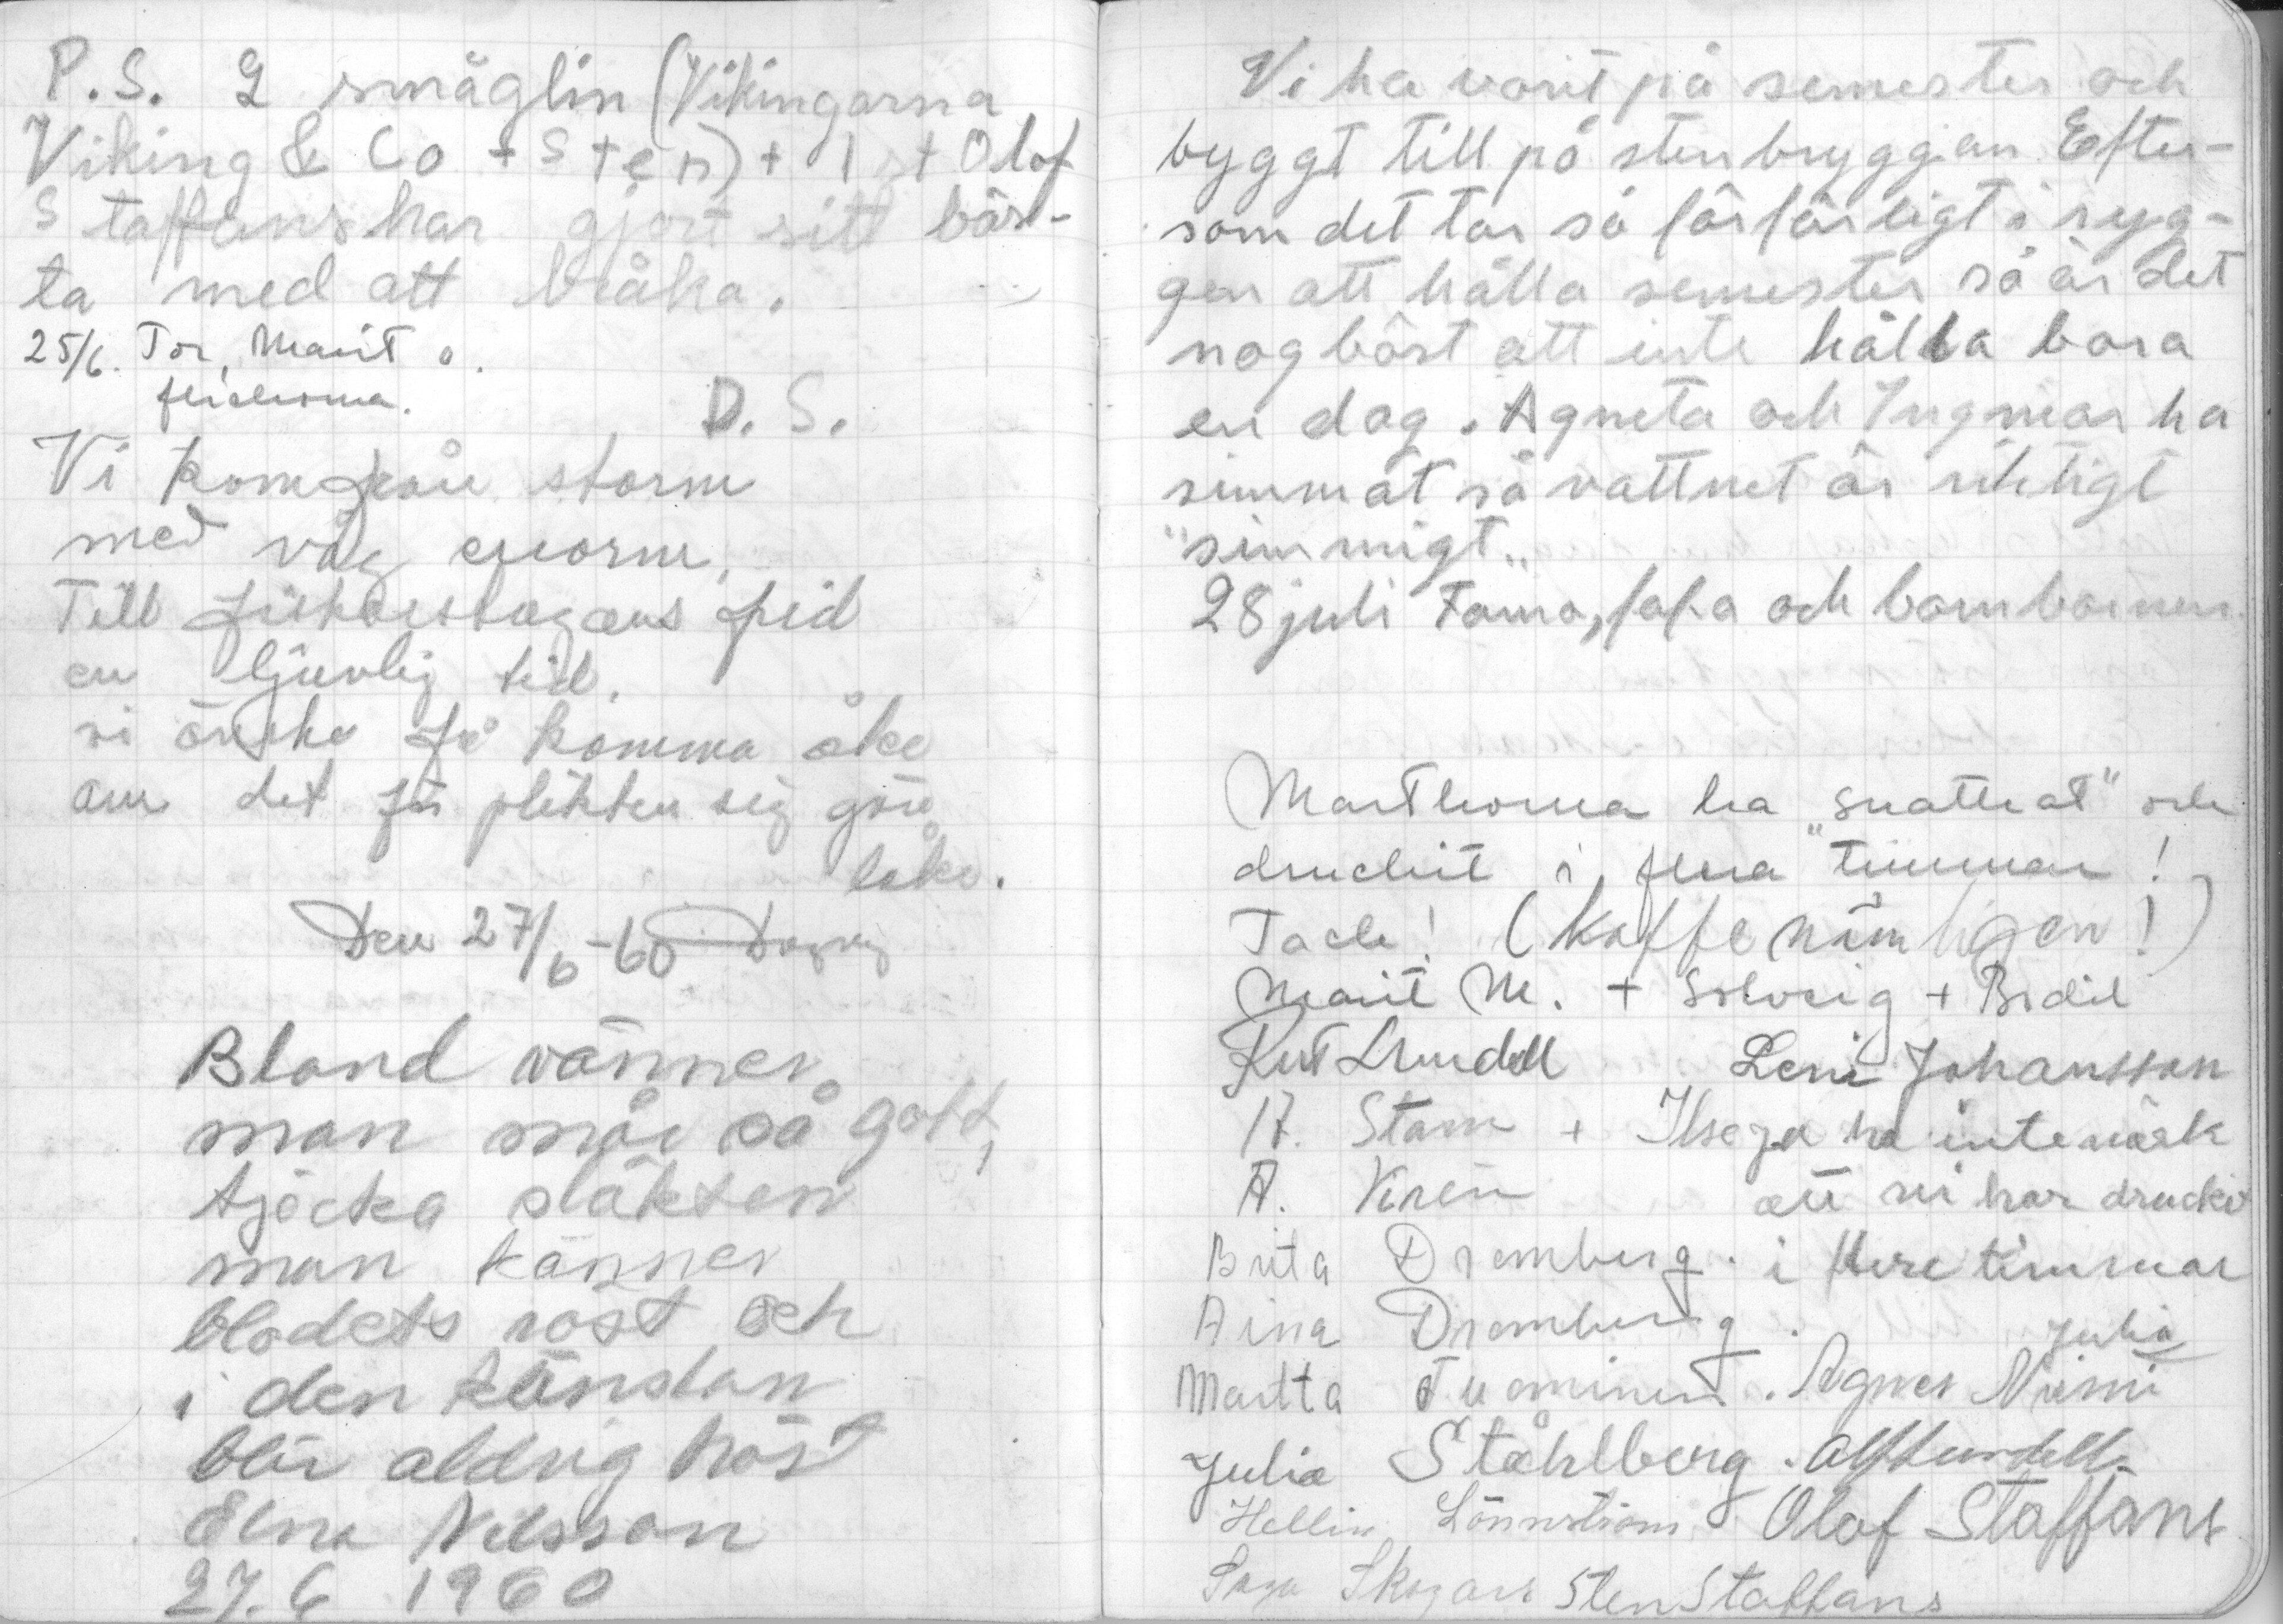 P.S. 2 småglin (Vikingarna
Viking & Co + Sten) + 1 st Olof
Staffans har gjort sitt bäs-
ta med att bråka.
25/6. Tor, Marit o.
flickorna.
D. S.
Vi kom från storm
med våg enorm,
Till fiskarstugans frid
en ljuvlig tid.
vi önska få komma åke
om det för plikten sig göre
låke.
Den 27/6 -60
Bland vänner
man mår så gott,
tjocka släkten
man känner
blodets röst och
i den känslan
blir aldrig höst
Elna Nilsson
27.6 1960
Vi ha varit på semester och
byggt till på stenbryggan. Efter-
som det tar så förfärligt i ryg-
gen att hålla semester så är det
nog bäst att inte hålla bara
en dag. Agneta och Ingmar ha
simmat så vattnet är riktigt
"simmigt".
28 juli Famo, fafa och barnbarnen
Marthorna ha "snattrat" och
druckit i flera "timmar!
Tack! (Kaffe nämligen!)
Marit M. + Solveig + Bodil
Rut Lundell Leni Johansson
H. Stam + Jag ha inte märk
A. Krén att vi har druckit
Brita Dromberg. i flere timmar
Aina Dromberg. Julia
Martta Tuominen. Agnes Niemi
Julia Ståhlberg. Alf Lundell
Hellin Lönnström Olof Staffans
Saga Skogars Sten Staffans